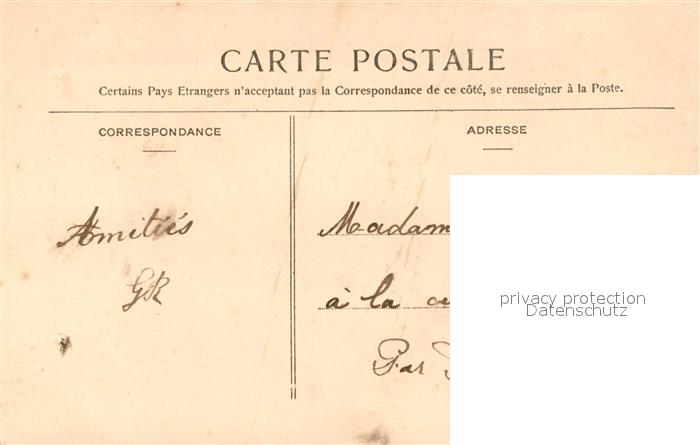 CARTE POSTALE
Certains Pays Etrangers n'acceptant pas la Correspondance de ce côté, se renseigner à la Poste.
CORRESPONDANCE
ADRESSE
Amitiés
GR
Madam
à la
Par
privacy protection
Datenschutz